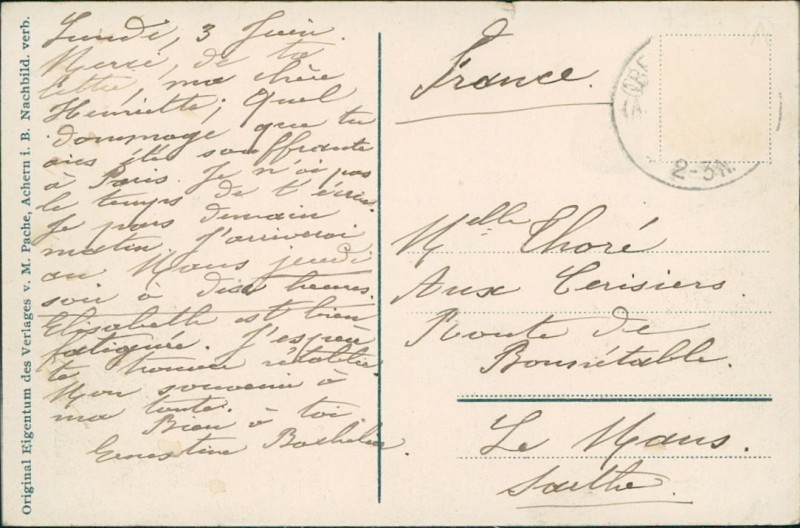 Lundi, 3 Juin.
Merci, de ta
lettre, ma chère
Henriette; Quel
dommage que tu
aies été souffrante
à Paris. Je n'ai pas
le temps de t'écrire.
Je pars demain
matin. J'arriverai
au Mans jeudi
soir à dix heures.
Elisabeth est bien
fatiguée. J'espère
te trouver rétablie.
Mon souvenir à
ma tante.
Bien à toi
Ernestine Bachelier.
Original Eigentum des Verlages v. M. Pache, Achern i. B. Nachbild. verb.
France.
2-3N.
Melle Thoré
Aux Cerisiers.
Route de
Bonnétable.
Le Mans.
Sarthe.